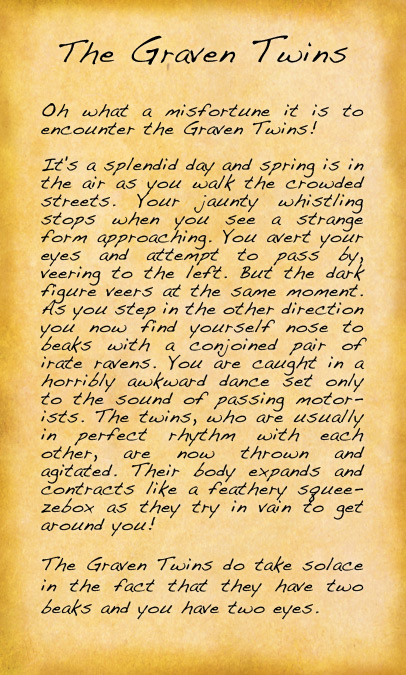 The Graven Twins
Oh what a misfortune it is to
encounter the Graven Twins!
It's a splendid day and spring is in
the air as you walk the crowded
streets. Your jaunty whistling
stops when you see a strange
form approaching. You avert your
eyes and attempt to pass by,
veering to the left. But the dark
figure veers at the same moment.
As you step in the other direction
you now find yourself nose to
beaks with a conjoined pair of
irate ravens. You are caught in a
horribly awkward dance set only
to the sound of passing motor-
ists. The twins, who are usually
in perfect rhythm with each
other, are now thrown and
agitated. Their body expands and
contracts like a feathery squee-
zebox as they try in vain to get
around you!
The Graven Twins do take solace
in the fact that they have two
beaks and you have two eyes.